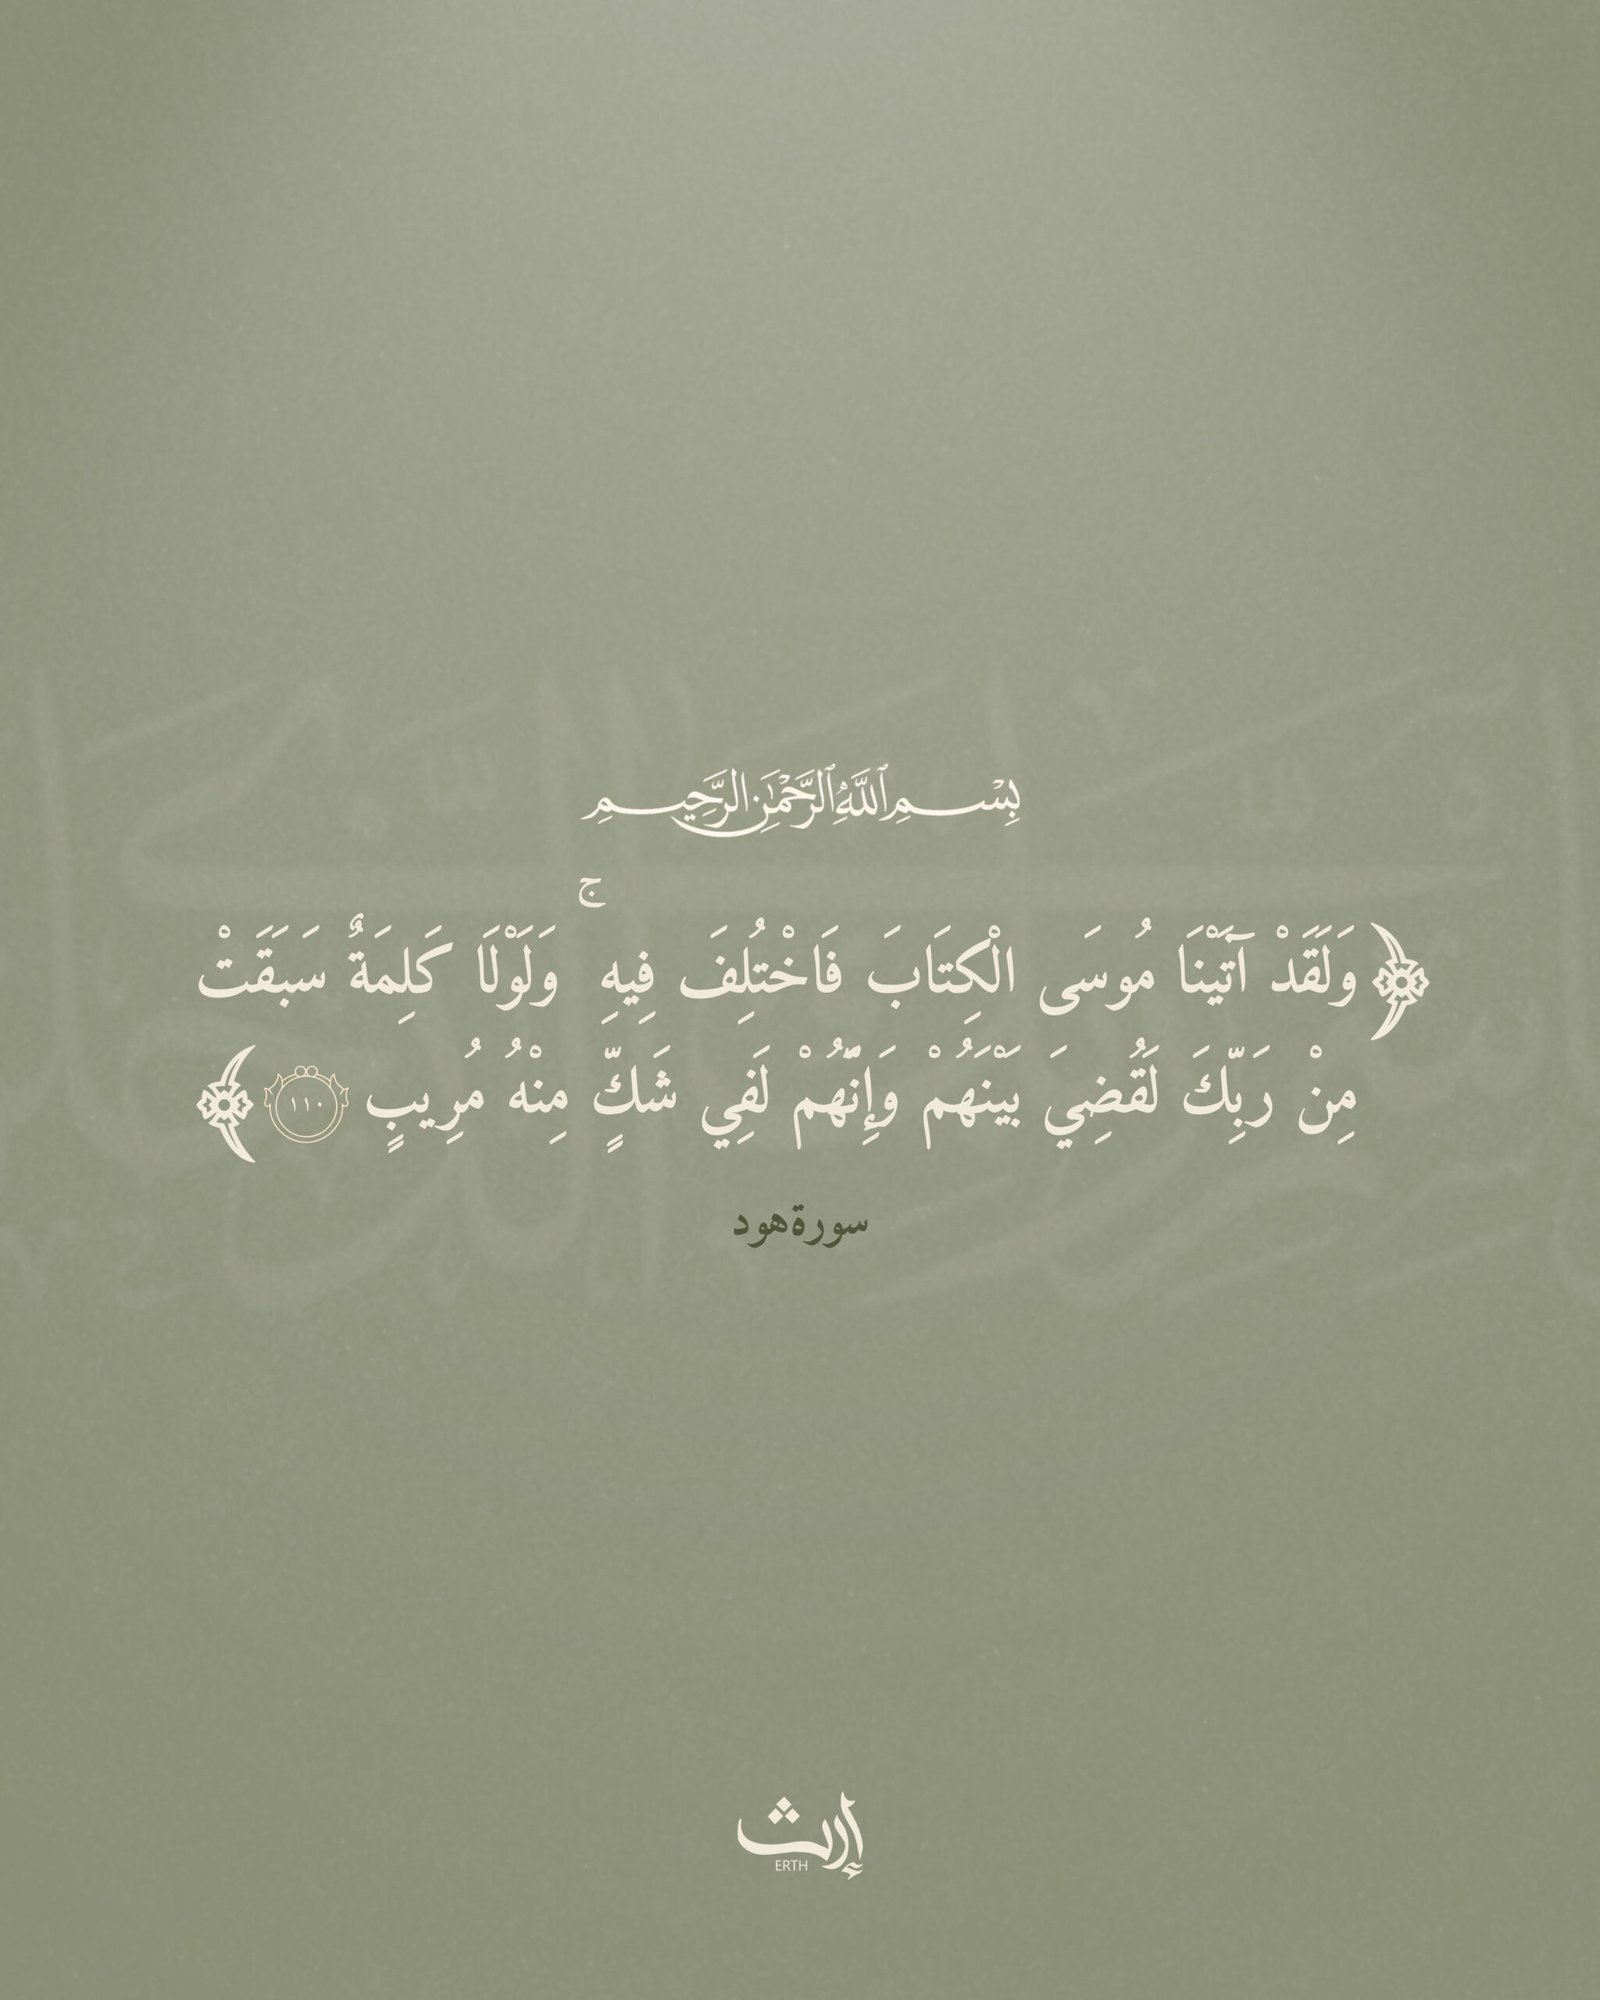 بِسْمِ ٱللَّهِ ٱلرَّحْمَٰنِ ٱلرَّحِيمِ
﴿وَلَقَدْ آتَيْنَا مُوسَى الْكِتَابَ فَاخْتُلِفَ فِيهِ ۚ وَلَوْلَا كَلِمَةٌ سَبَقَتْ
مِنْ رَبِّكَ لَقُضِيَ بَيْنَهُمْ وَإِنَّهُمْ لَفِي شَكٍّ مِنْهُ مُرِيبٍ ١١٠﴾
سورة هود
إرث
ERTH